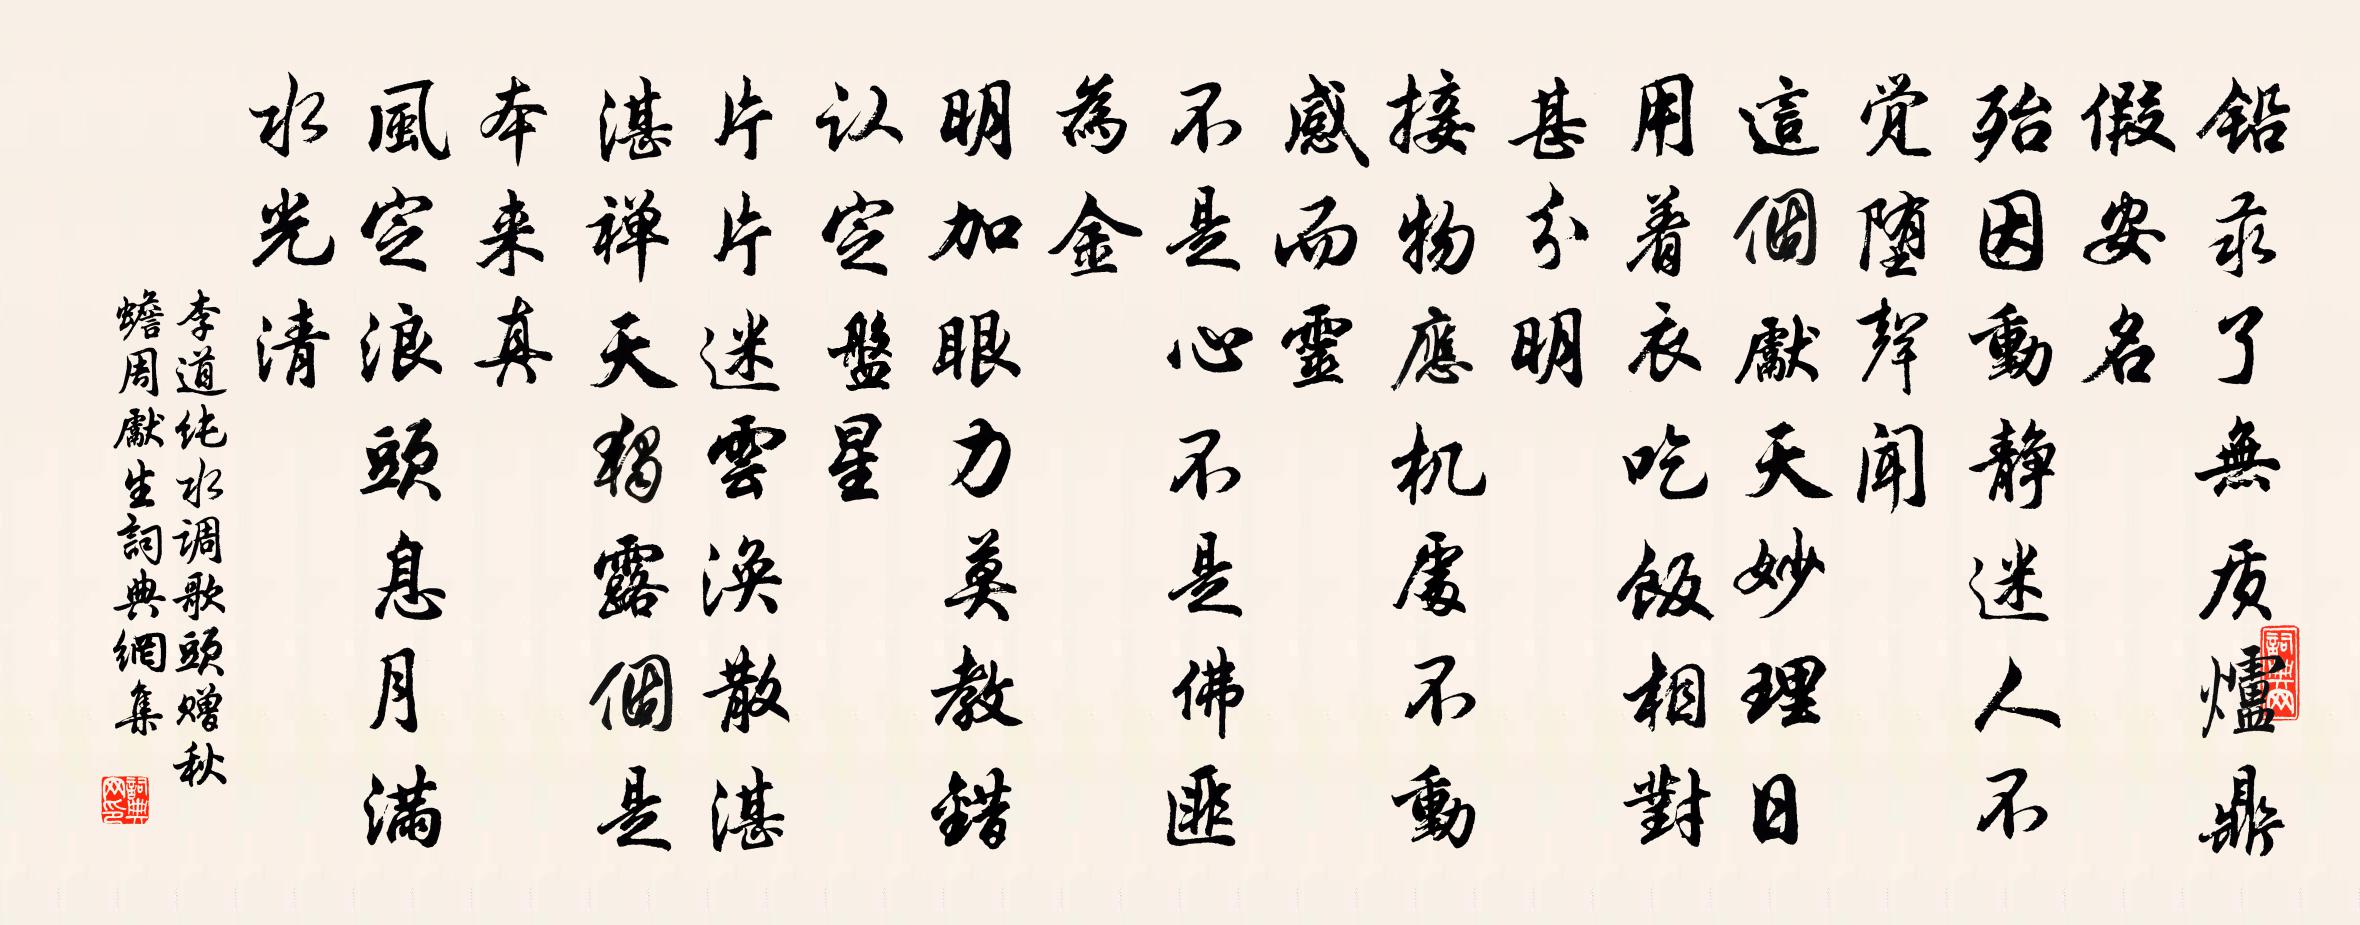 铅汞了無质爐鼎
假安名
殆因動静迷人不
觉堕聲闻
這個獻天妙理日
用着衣吃飯相對
甚分明
接物應机處不動
感而靈
不是心不是佛匪
為金
明加眼力莫教錯
认定盤星
片片迷雲渙散湛
湛禅天獨露個是
本来真
風定浪頭息月满
水光清
李道纯水调歌頭赠秋
蟾周獻生詞典網集
詞典网
詞典网印